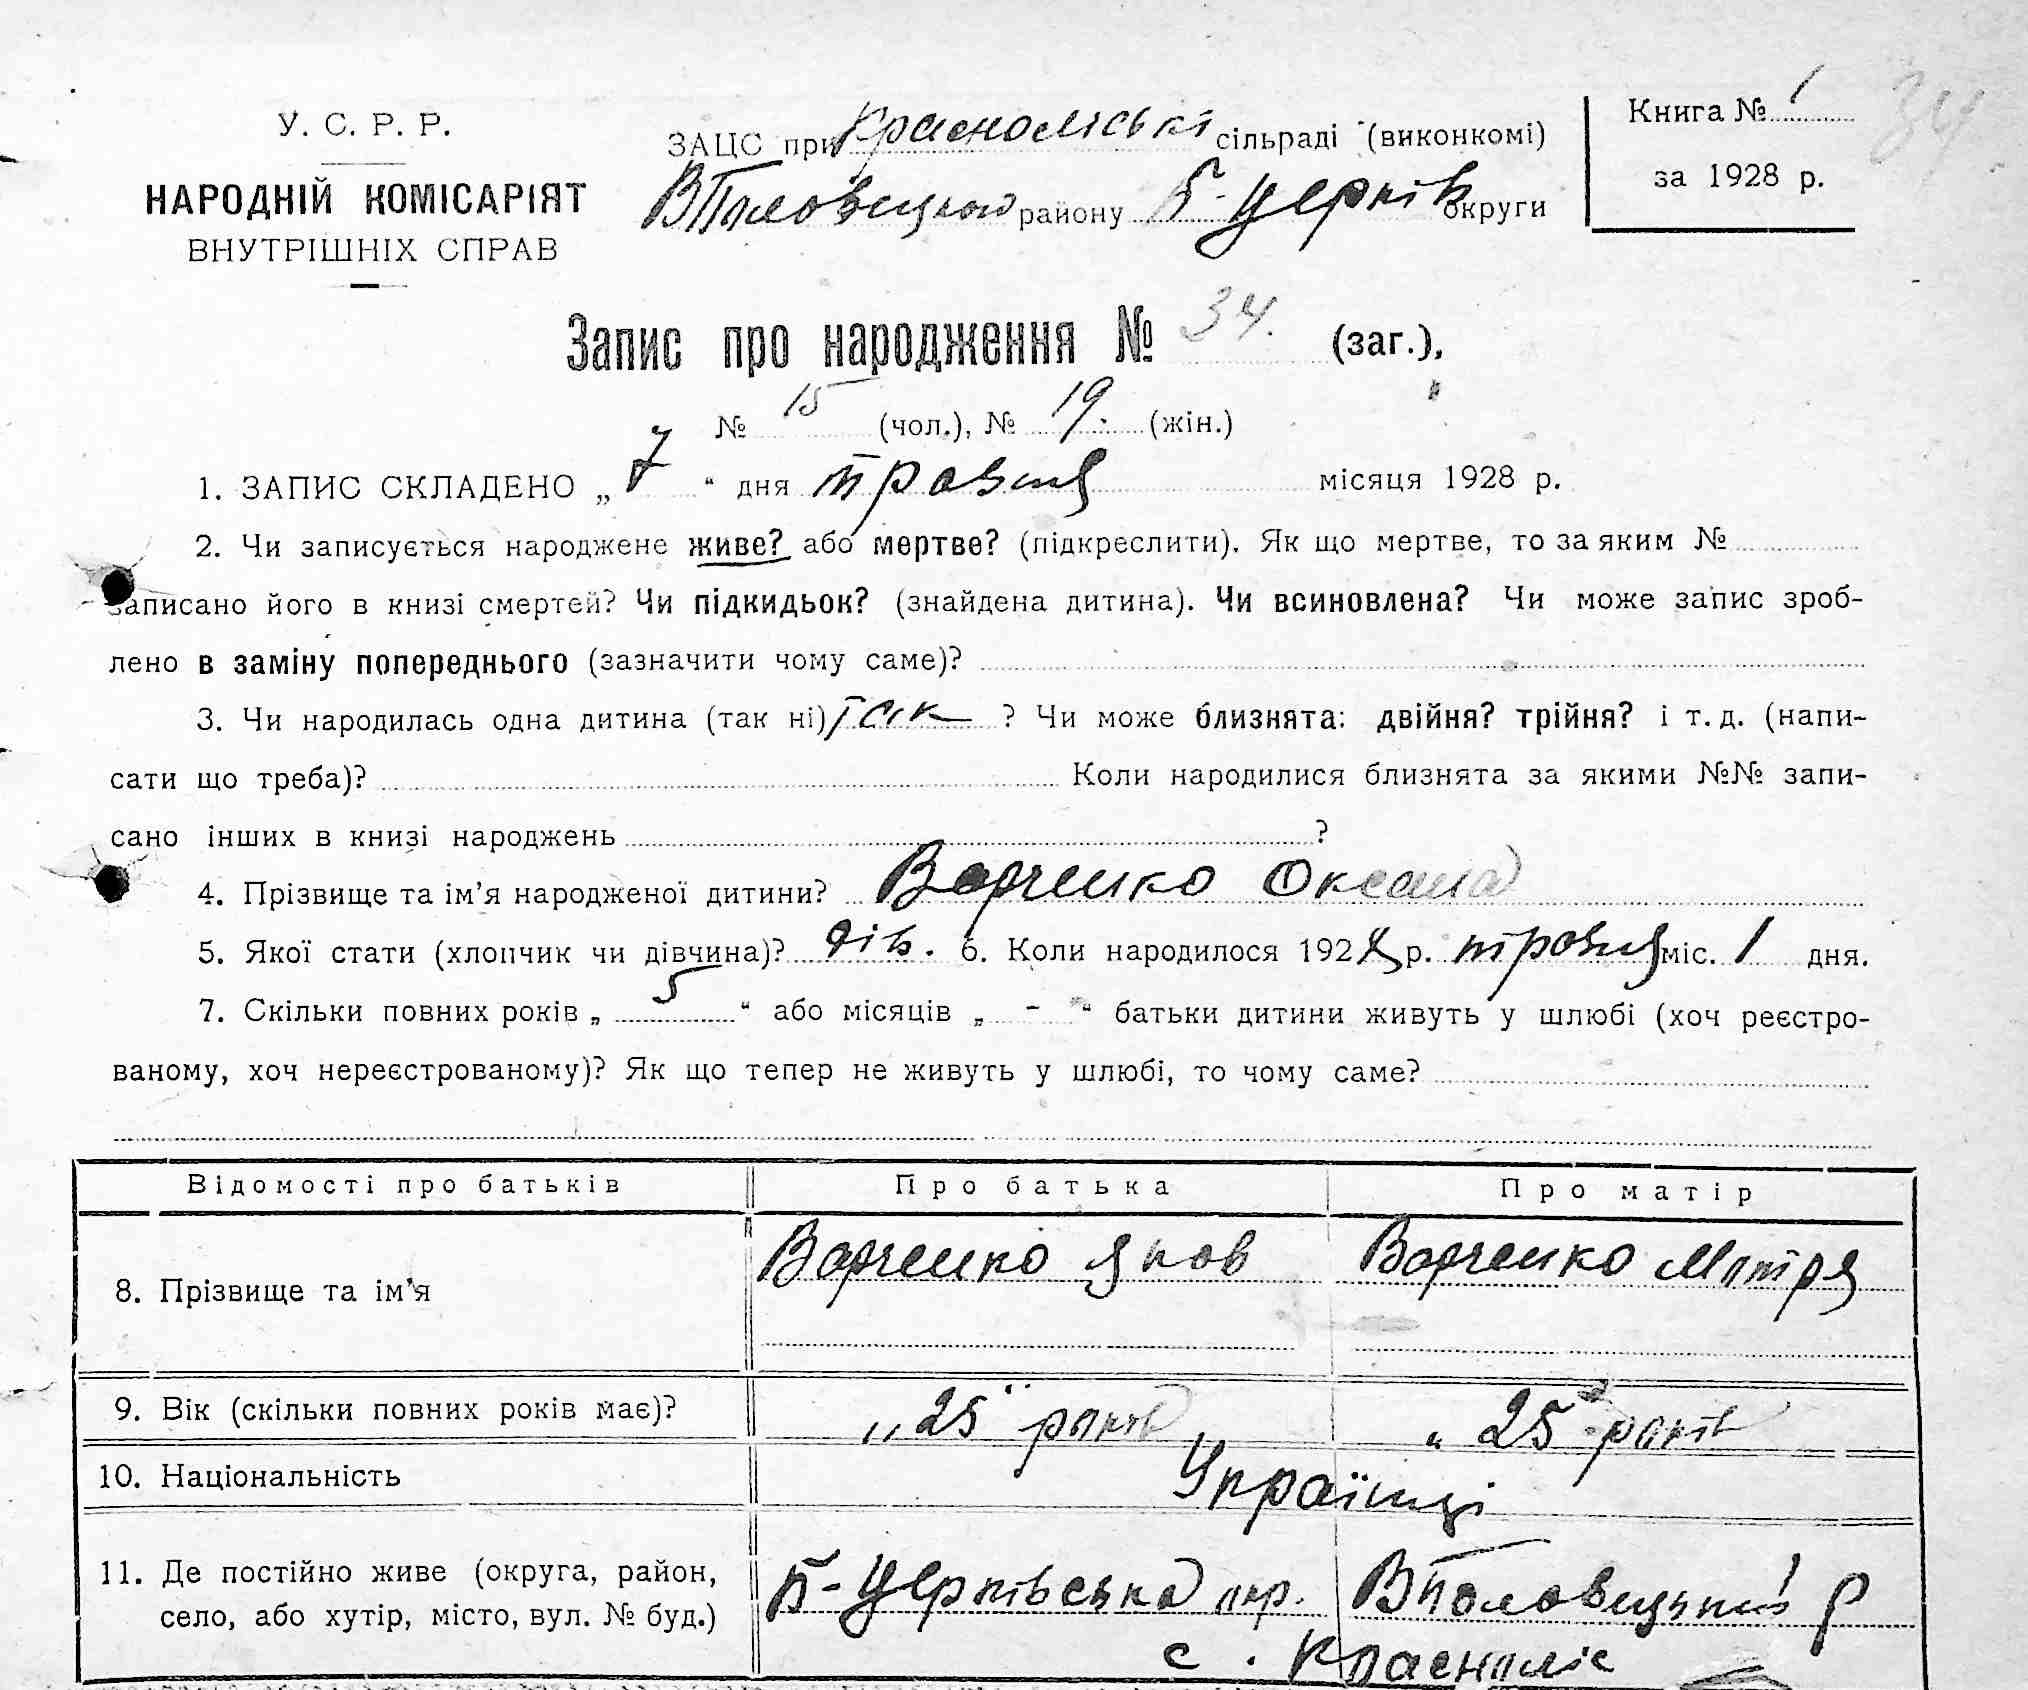 У. С. Р. Р.
НАРОДНІЙ КОМІСАРІЯТ
ВНУТРІШНІХ СПРАВ
ЗАЦС при Красноліській сільраді (виконкомі)
ВПоловецького району Б-Церків округи
Книга № 1
за 1928 р.
34
Запис про народження № 34. (заг.),
№ 15 (чол.), № 19. (жін.)
1. ЗАПИС СКЛАДЕНО „ 7 “ дня травня місяця 1928 р.
2. Чи записується народжене живе? або мертве? (підкреслити). Як що мертве, то за яким №
записано його в книзі смертей? Чи підкидьок? (знайдена дитина). Чи всиновлена? Чи може запис зроб-
лено в заміну попереднього (зазначити чому саме)?
3. Чи народилась одна дитина (так ні) так ? Чи може близнята: двійня? трійня? і т. д. (напи-
сати що треба)? Коли народилися близнята за якими №№ запи-
сано інших в книзі народжень ?
4. Прізвище та ім’я народженої дитини? Варченко Оксана
5. Якої стати (хлопчик чи дівчина)? дів. 6. Коли народилося 1928 р. травня міс. 1 дня.
7. Скільки повних років „ 5 “ або місяців „ - “ батьки дитини живуть у шлюбі (хоч реєстро-
ваному, хоч нереєстрованому)? Як що тепер не живуть у шлюбі, то чому саме?
Відомості про батьків Про батька Про матір
8. Прізвище та ім’я Варченко Яков Варченко Мотря
9. Вік (скільки повних років має)? „25“ років „25“ років
10. Національність Українці
11. Де постійно живе (округа, район, Б-Церківська окр. ВПоловецький р
село, або хутір, місто, вул. № буд.) с. Красноліс